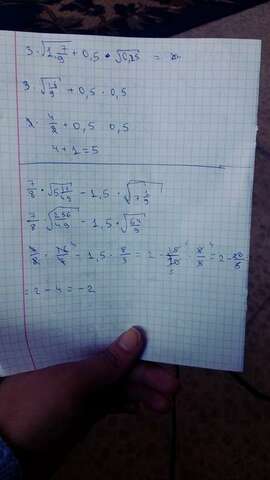 3 · √1 7/9 + 0,5 · √0,25 =
3 · √16/9 + 0,5 · 0,5
4/3 + 0,5 0,5
4 + 1 = 5
7/8 · √5 11/49 − 1,5 · √7 1/9
7/8 · √256/49 − 1,5 · √64/9
· 16/7 − 1,5 · 8/3 = 2 − 15/10 · 8/3 = 2 −
= 2 − 4 = −2